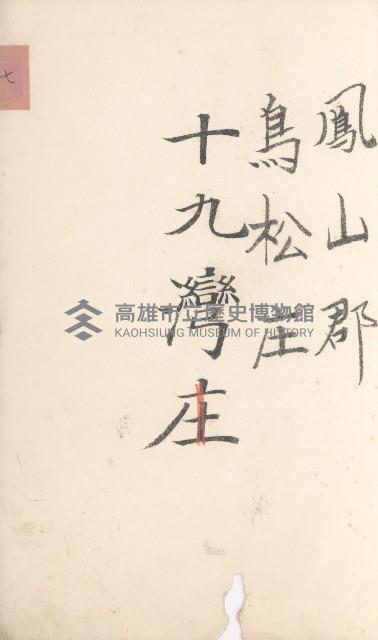 鳳山郡
鳥松庄
十九灣庄
七
高雄市立歷史博物館
KAOHSIUNG MUSEUM OF HISTORY